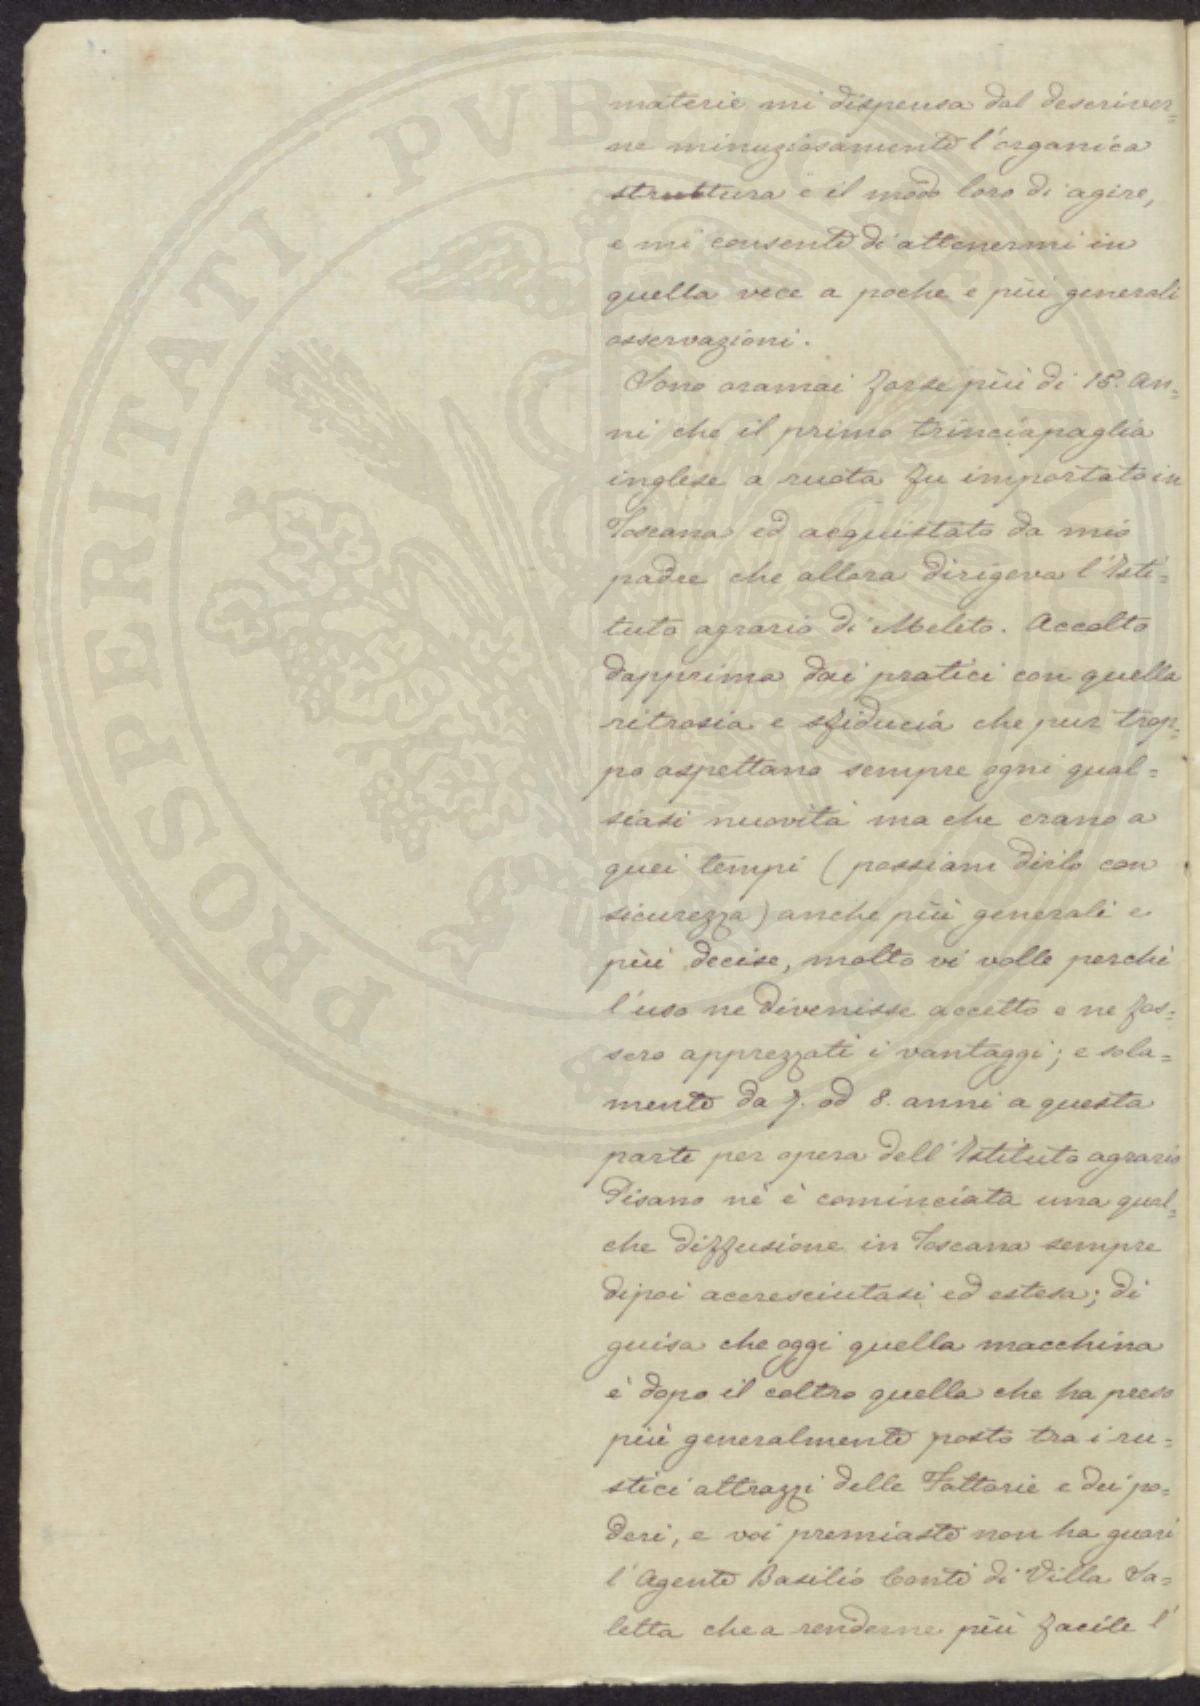 materie mi dispensa dal descriver=
ne minuziosamente l'organica
struttura e il modo loro di agire,
e mi consente di attenermi in
quella vece a poche e più generali
osservazioni.
Sono oramai forse più di 18. An=
ni che il primo trinciapaglia
inglese a ruota fu importato in
Toscana ed acquistato da mio
padre che allora dirigeva l'Isti=
tuto agrario di Meleto. Accolto
dapprima dai pratici con quella
ritrosia e sfiducia che pur trop=
po aspettano sempre ogni qual=
siasi nuovità ma che erano a
quei tempi (possiam dirlo con
sicurezza) anche più generali e
più decise, molto vi volle perchè
l'uso ne divenisse accetto e ne fos=
sero apprezzati i vantaggi; e sola=
mente da 7. od 8. anni a questa
parte per opera dell'Istituto agrario
Pisano nè è cominciata una qual=
che diffusione in Toscana sempre
dipoi accresciutasi ed estesa; di
guisa che oggi quella macchina
è dopo il coltro quella che ha preso
più generalmente posto tra i ru=
stici attrazzi delle Fattorie e dei po=
deri, e voi premiaste non ha guari
l'Agente Basilio Conti di Villa Sa=
letta che a renderne più facile l'
PROSPERITATI PVBLICAE